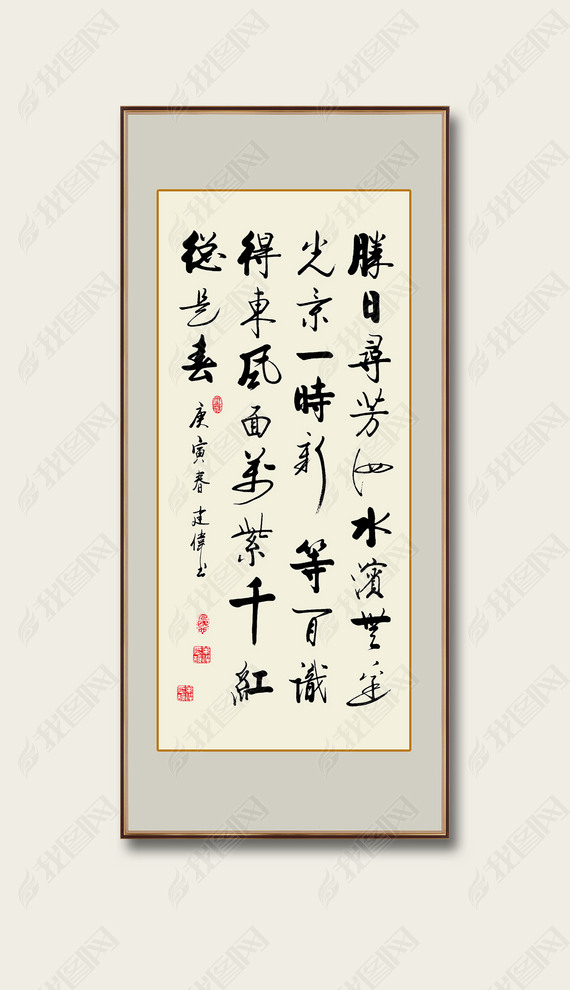 勝日尋芳泗水濱無邊
光景一時新 等閒識
得東風面萬紫千紅
總是春
庚寅春建偉书
我图网